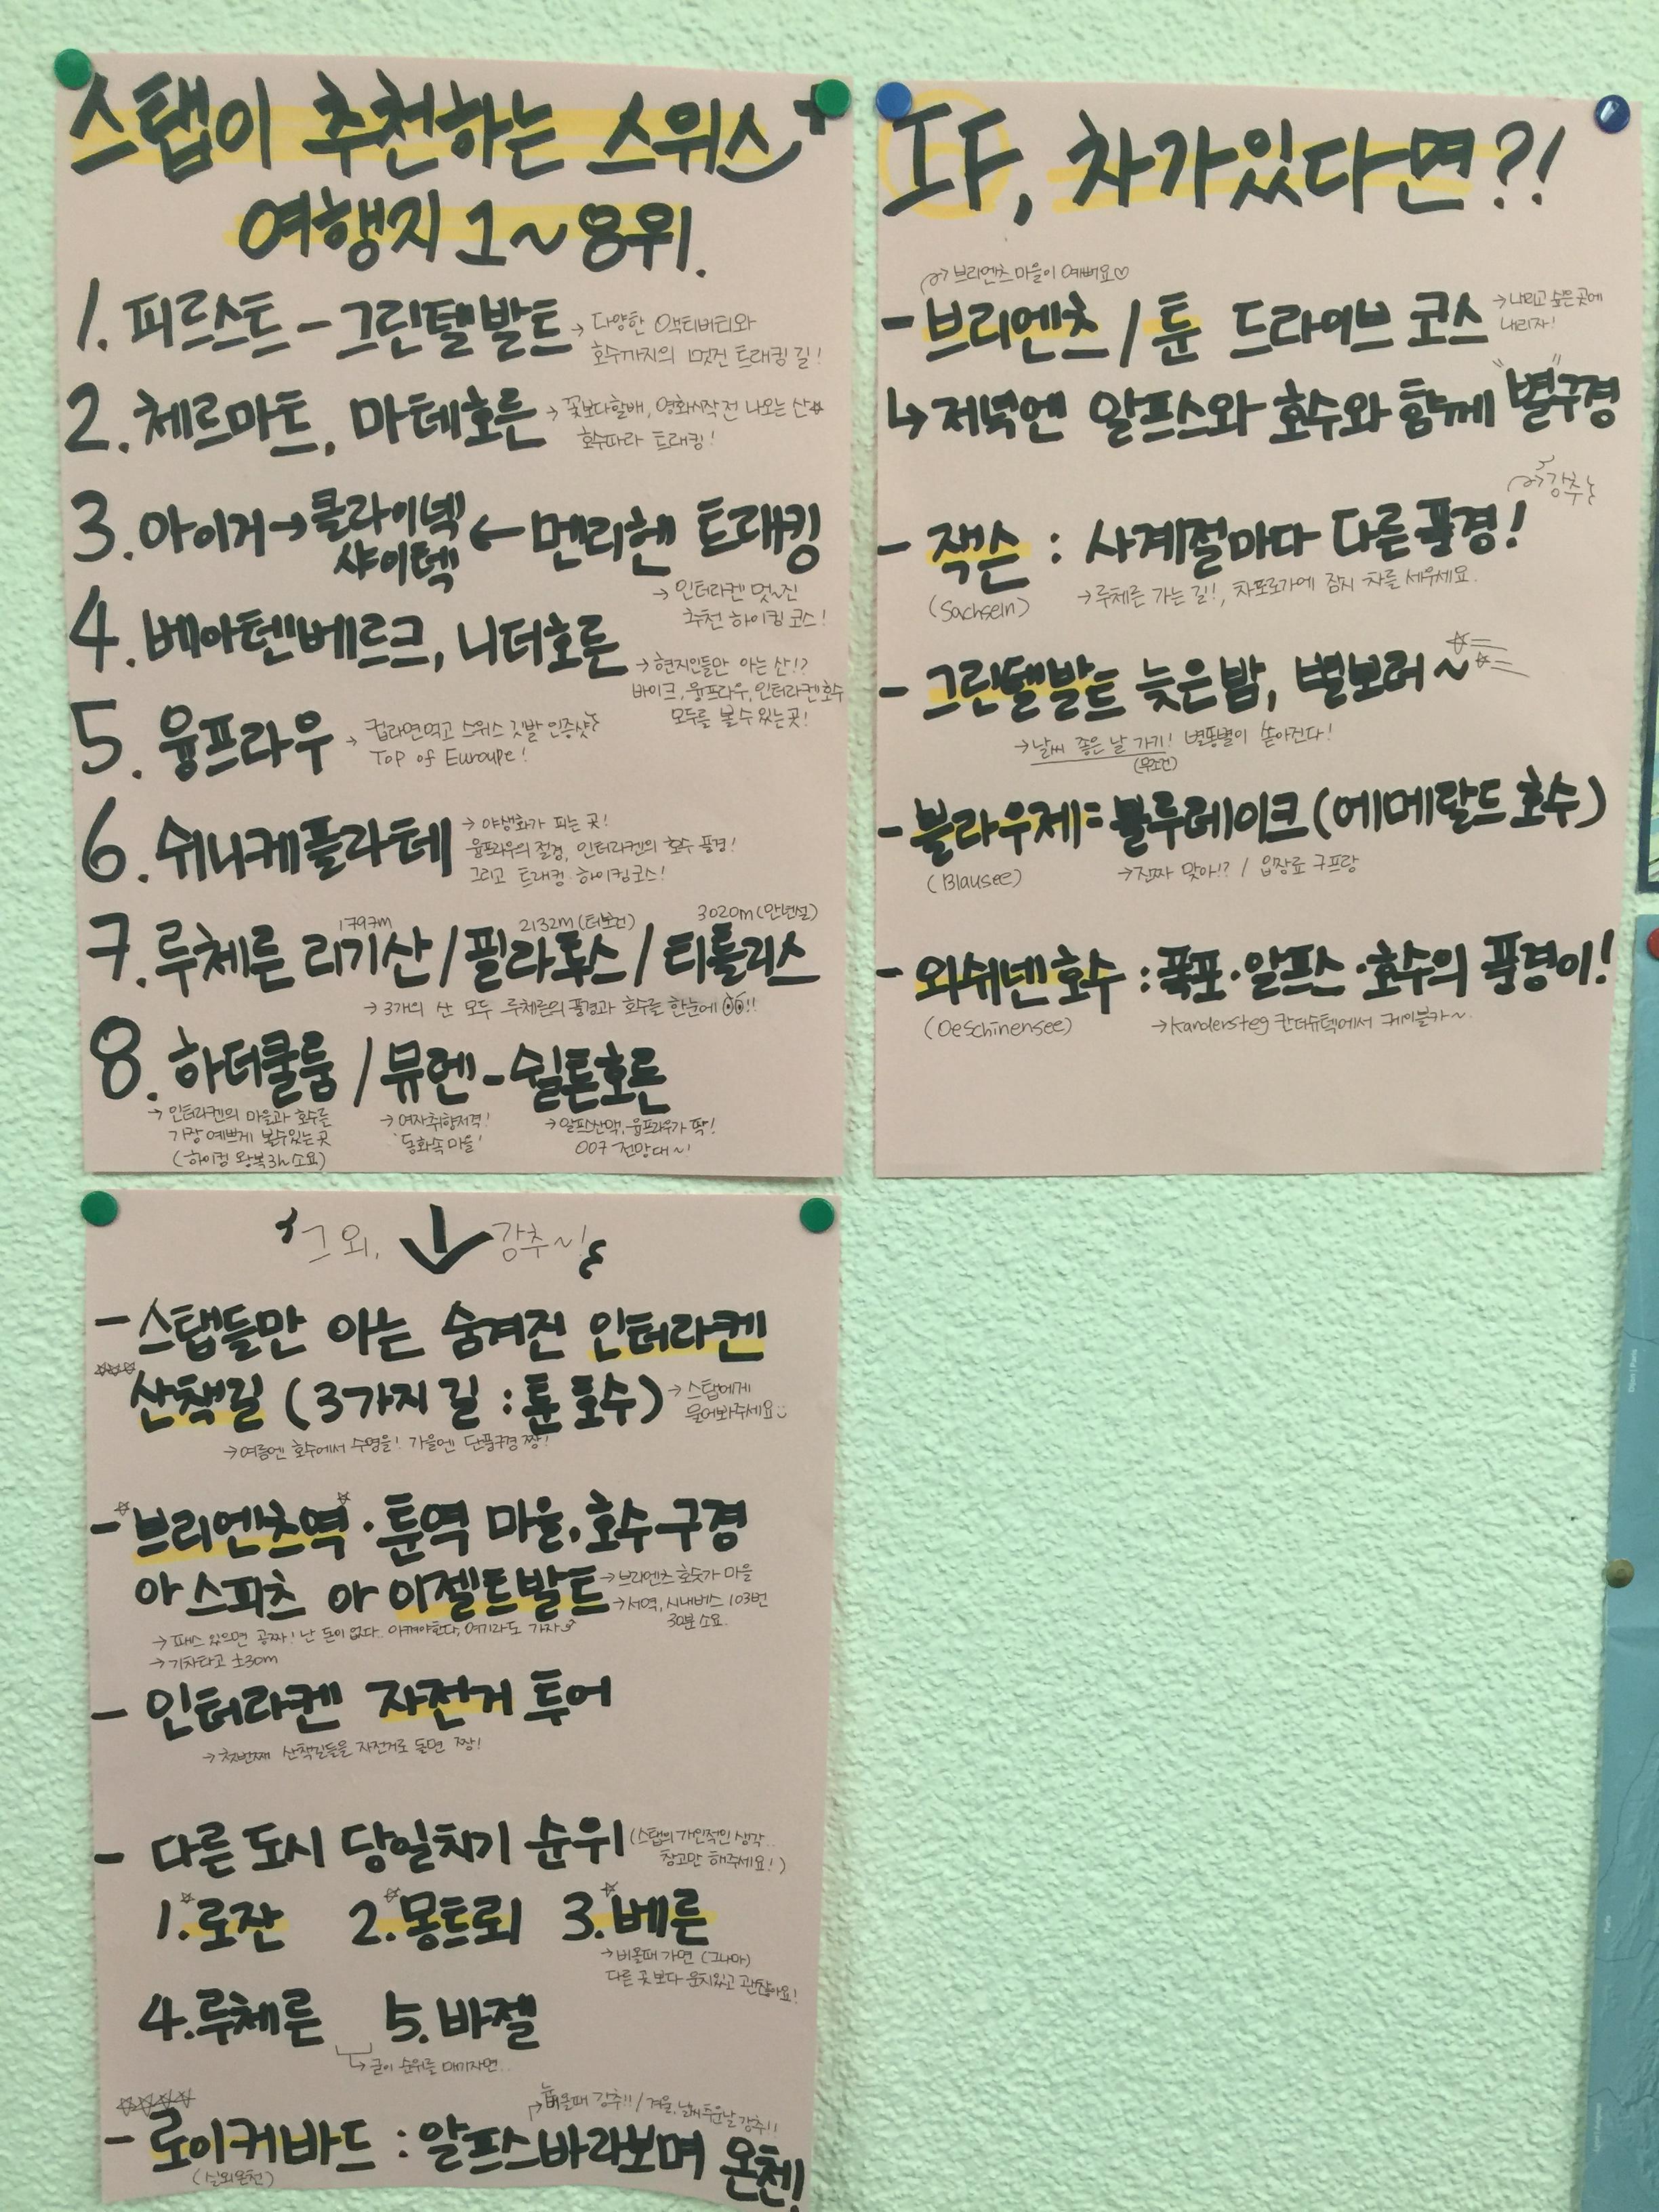 스탭이 추천하는 스위스
여행지 1~8위.
1. 피르스트 - 그린델발트
→ 다양한 액티비티와
호수까지의 멋진 트래킹 길!
2. 체르마트, 마테호른
→ 꽃보다할배, 영화시작전 나오는 산☆
호수따라 트래킹!
3. 아이거 → 클라이넥 샤이덱 ← 멘리헨 트래킹
→ 인터라켄 멋~진
추천 하이킹 코스!
4. 베아텐베르크, 니더호른
→ 현지인들만 아는 산!?
바이크, 융프라우, 인터라켄호수
모두를 볼 수 있는 곳!
5. 융프라우
→ 컵라면먹고 스위스 깃발 인증샷
Top of Euroupe!
6. 쉬니케플라테
→ 야생화가 피는 곳!
융프라우의 절경, 인터라켄의 호수 풍경!
그리고 트래킹·하이킹코스!
1797m 2132m 3020m (만년설)
7. 루체른 리기산 / 필라투스 / 티틀리스
→ 3개의 산 모두 루체른의 풍경과 호수를 한눈에!!
8. 하더쿨룸 / 뮤렌 - 쉴튼호른
→ 인터라켄의 마을과 호수를
가장 예쁘게 볼수있는 곳
(하이킹 왕복3h 소요)
→ 여자취향저격!
'동화속 마을'
→ 알프스산맥, 융프라우가 딱!
007 전망대~!
IF, 차가있다면?!
→ 브리엔츠 마을이 예뻐요♡
- 브리엔츠 / 툰 드라이브 코스
→ 내리고 싶은 곳에
내리자!
↳ 저녁엔 알프스와 호수와 함께 "별"구경
→ 강추
- 잭슨 : 사계절마다 다른 풍경!
(Sachseln)
→ 루체른 가는 길!, 차포로가에 잠시 차를 세우세요.
- 그린델발트 늦은밤, 별보러~
→ 날씨 좋은 날 가기! 별똥별이 쏟아진다!
(무조건)
- 블라우제 = 블루레이크 (에메랄드 호수)
(Blausee)
→ 진짜 맞아!? / 입장료 구프랑
- 외쉬넨 호수 : 폭포·알프스·호수의 풍경이!
(Oeschinensee)
→ Kandersteg 칸더슈텍에서 케이블카~
그 외, ↓ 강추~!
- 스탭들만 아는 숨겨진 인터라켄
☆☆☆ 산책길 (3가지 길 : 툰 호수)
→ 스탭에게
물어봐주세요
→ 여름엔 호수에서 수영을! 가을엔 단풍구경 짱!
- 브리엔츠역 · 툰역 마을, 호수 구경
아 스피츠 아 이젤트발트
→ 브리엔츠 호숫가 마을
→ 서역, 시내버스 103번
30분 소요.
→ 패스 있으면 공짜! 난 돈이 없다.. 아껴야한다, 여기라도 가자
→ 기차타고 ±30m
- 인터라켄 자전거 투어
→ 첫번째 산책길들을 자전거로 돌면 짱!
- 다른 도시 당일치기 순위
(스탭의 개인적인 생각..
참고만 해주세요!)
1. 로잔 2. 몽트뢰 3. 베른
→ 비올때 가면 (그나마)
다른 곳 보다 운치있고 괜찮아요!
4. 루체른 5. 바젤
↳ 굳이 순위를 매기자면..
☆☆☆☆
→ 비올때 강추!! / 겨울, 날씨추운날 강추!!
- 로이커바드 : 알프스바라보며 온천!
(실외온천)